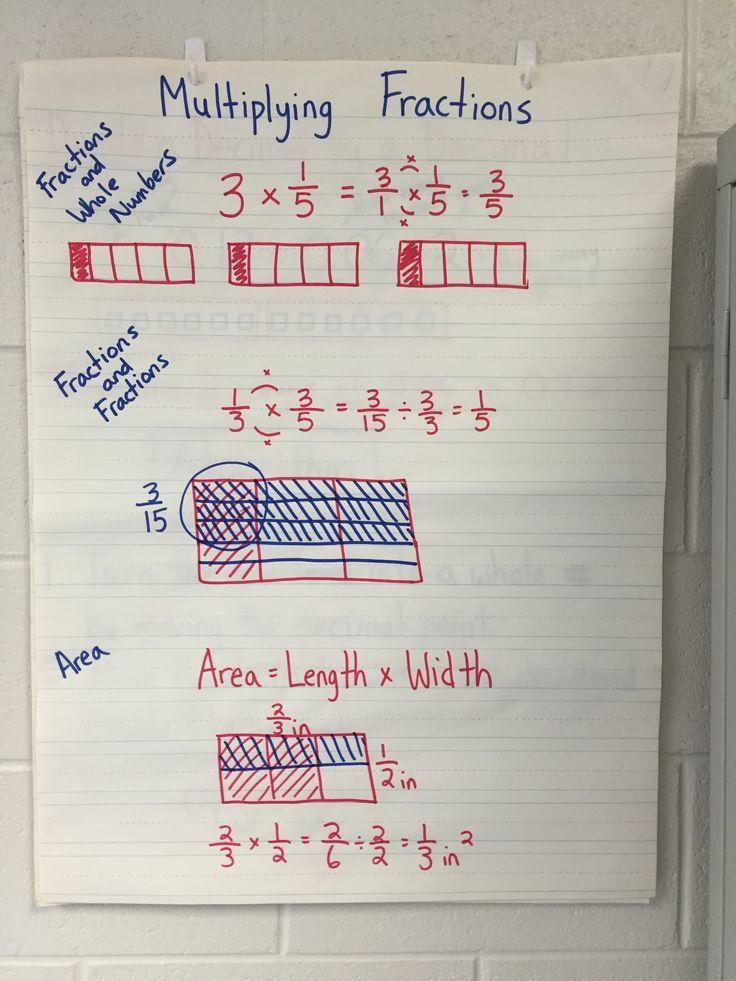 Multiplying Fractions
Fractions
and
Whole
Numbers
3 × 1/5 = 3/1 × 1/5 = 3/5
x
x
Fractions
and
Fractions
1/3 × 3/5 = 3/15 ÷ 3/3 = 1/5
x
x
3/15
Area
Area = Length × Width
2/3 in
1/2 in
2/3 × 1/2 = 2/6 ÷ 2/2 = 1/3 in²